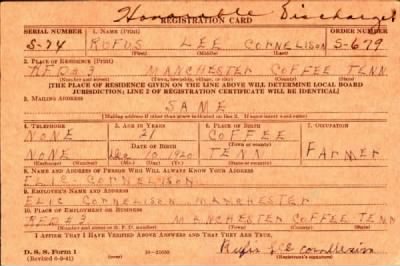 Honorable Discharged
REGISTRATION CARD
SERIAL NUMBER 1. NAME (Print) ORDER NUMBER
S-74 RUFUS LEE CORNELISON S-679
(First) (Middle) (Last)
2. PLACE OF RESIDENCE (Print)
RFD#3 MANCHESTER COFFEE TENN
(Town, township, village, or city) (County) (State)
[THE PLACE OF RESIDENCE GIVEN ON THE LINE ABOVE WILL DETERMINE LOCAL BOARD
JURISDICTION; LINE 2 OF REGISTRATION CERTIFICATE WILL BE IDENTICAL]
3. MAILING ADDRESS
SAME
[Mailing address if other than place indicated on line 2. If same insert word same]
4. TELEPHONE 5. AGE IN YEARS 6. PLACE OF BIRTH 7. OCCUPATION
NONE 21 COFFEE
DATE OF BIRTH (Town or county)
NONE 1920 TENN FARMER
(Exchange) (Number) (Mo.) (Day) (Yr.) (State or country)
8. NAME AND ADDRESS OF PERSON WHO WILL ALWAYS KNOW YOUR ADDRESS
CORNELISON
9. EMPLOYER'S NAME AND ADDRESS
CORNELISON MANCHESTER
10. PLACE OF EMPLOYMENT OR BUSINESS
RFD#3 MANCHESTER COFFEE TENN
(Street or R. F. D. number) (Town) (County) (State)
I AFFIRM THAT I HAVE VERIFIED ABOVE ANSWERS AND THAT THEY ARE TRUE.
D. S. S. Form 1
(Revised 6-9-41) (Registrant's signature)
Rufus Lee Cornelison